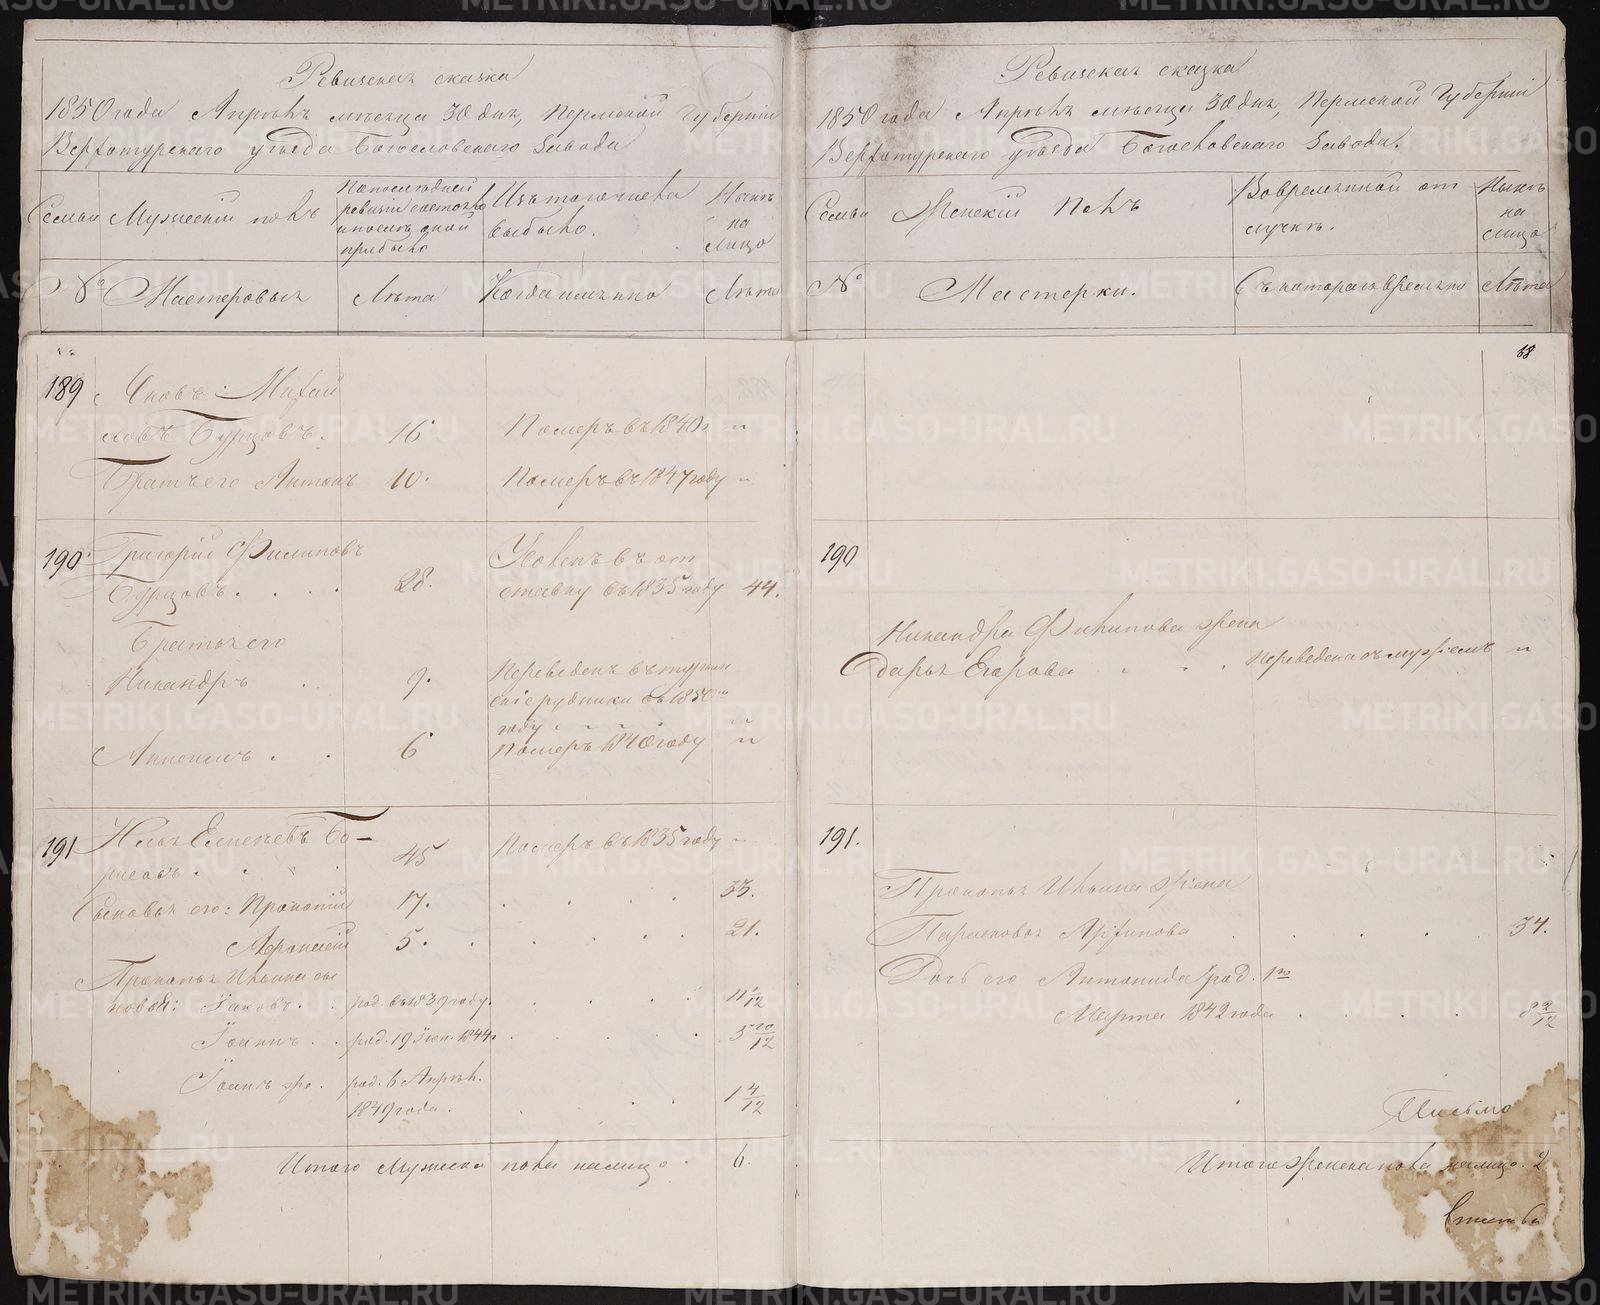 Ревизская сказка
1850 года Апрѣлѧ мѣсяца 30 дня, Пермской Губерніи
Верхотурскаго уѣзда Богословскаго завода
Семьи
Мужескій полъ
По последней
ревизіи состояло
и после оной
прибыло
Изъ того числа
выбыло.
Нынѣ
на
лицо
№
Мастеровые
Лѣта
Когда именно
Лѣта
189
Яковъ Михай
ловъ Бурцовъ.
16
Померъ въ 1840 г
"
Братъ его Антонъ
10.
Померъ въ 1847 году
"
190
Григорій Филиповъ
Бурцовъ
28.
Уволенъ въ от
ставку въ 1835 году
44.
Братья его
Никандръ
9.
Переведенъ въ турьин
скіе рудники въ 1850 м
году
"
6
Померъ 1840 году
"
191
Илья Бо-
рисовъ
45
Померъ въ 1835 году
"
Сыновья его: Прокопій
17.
33.
Афонасій
5.
21.
Прокопья Ильина сы
новья: Іаковъ
род. въ 1839 году.
11/12
Іоаннъ
род. 19 1844 г
5 10/12
Іоаннъ же
род. 6 Апрѣл.
1849 года.
1 4/12
Итого Мужеска пола налицо
6.
Ревизская сказка
1850 года Апрѣлѧ мѣсяца 30 дня, Пермской Губерніи
Верхотурскаго уѣзда Богословскаго завода.
Семьи
Женскій полъ
Во временной от
лучкѣ.
Нынѣ
на
лицо
№
Мастерки.
Съ котораго времени
Лѣта
68
190
Никандра Филипова жена
Дарья Егорова
Переведена съ мужемъ
"
191.
Прокопья Ильина жена
Архипова
34.
Дочь его Антонида род. 1 го
Марта 1842 года
8 2/12
Письмо
Итого женска пола налицо.
2
METRIKI.GASO-URAL.RU